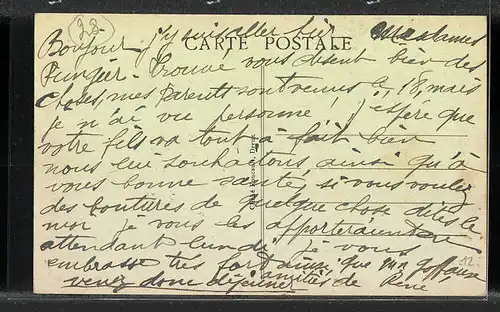 28
Bonjour, j'y suis aller hier Mesdames
CARTE POSTALE
trouve vous disent bien des
choses, mes Parents sont venus le 18, mais
je n'ai vu personne j'espére que
votre fils va tout à fait bien
nous lui souhaitons ainsi qu'à
vous bonne santé, si vous voulez
des de quelque chose dites le
moi je vous les apporterai en
attendant lundi je vous
embrasse très fort ainsi que
venez donc déjeuner amitiés de René
12